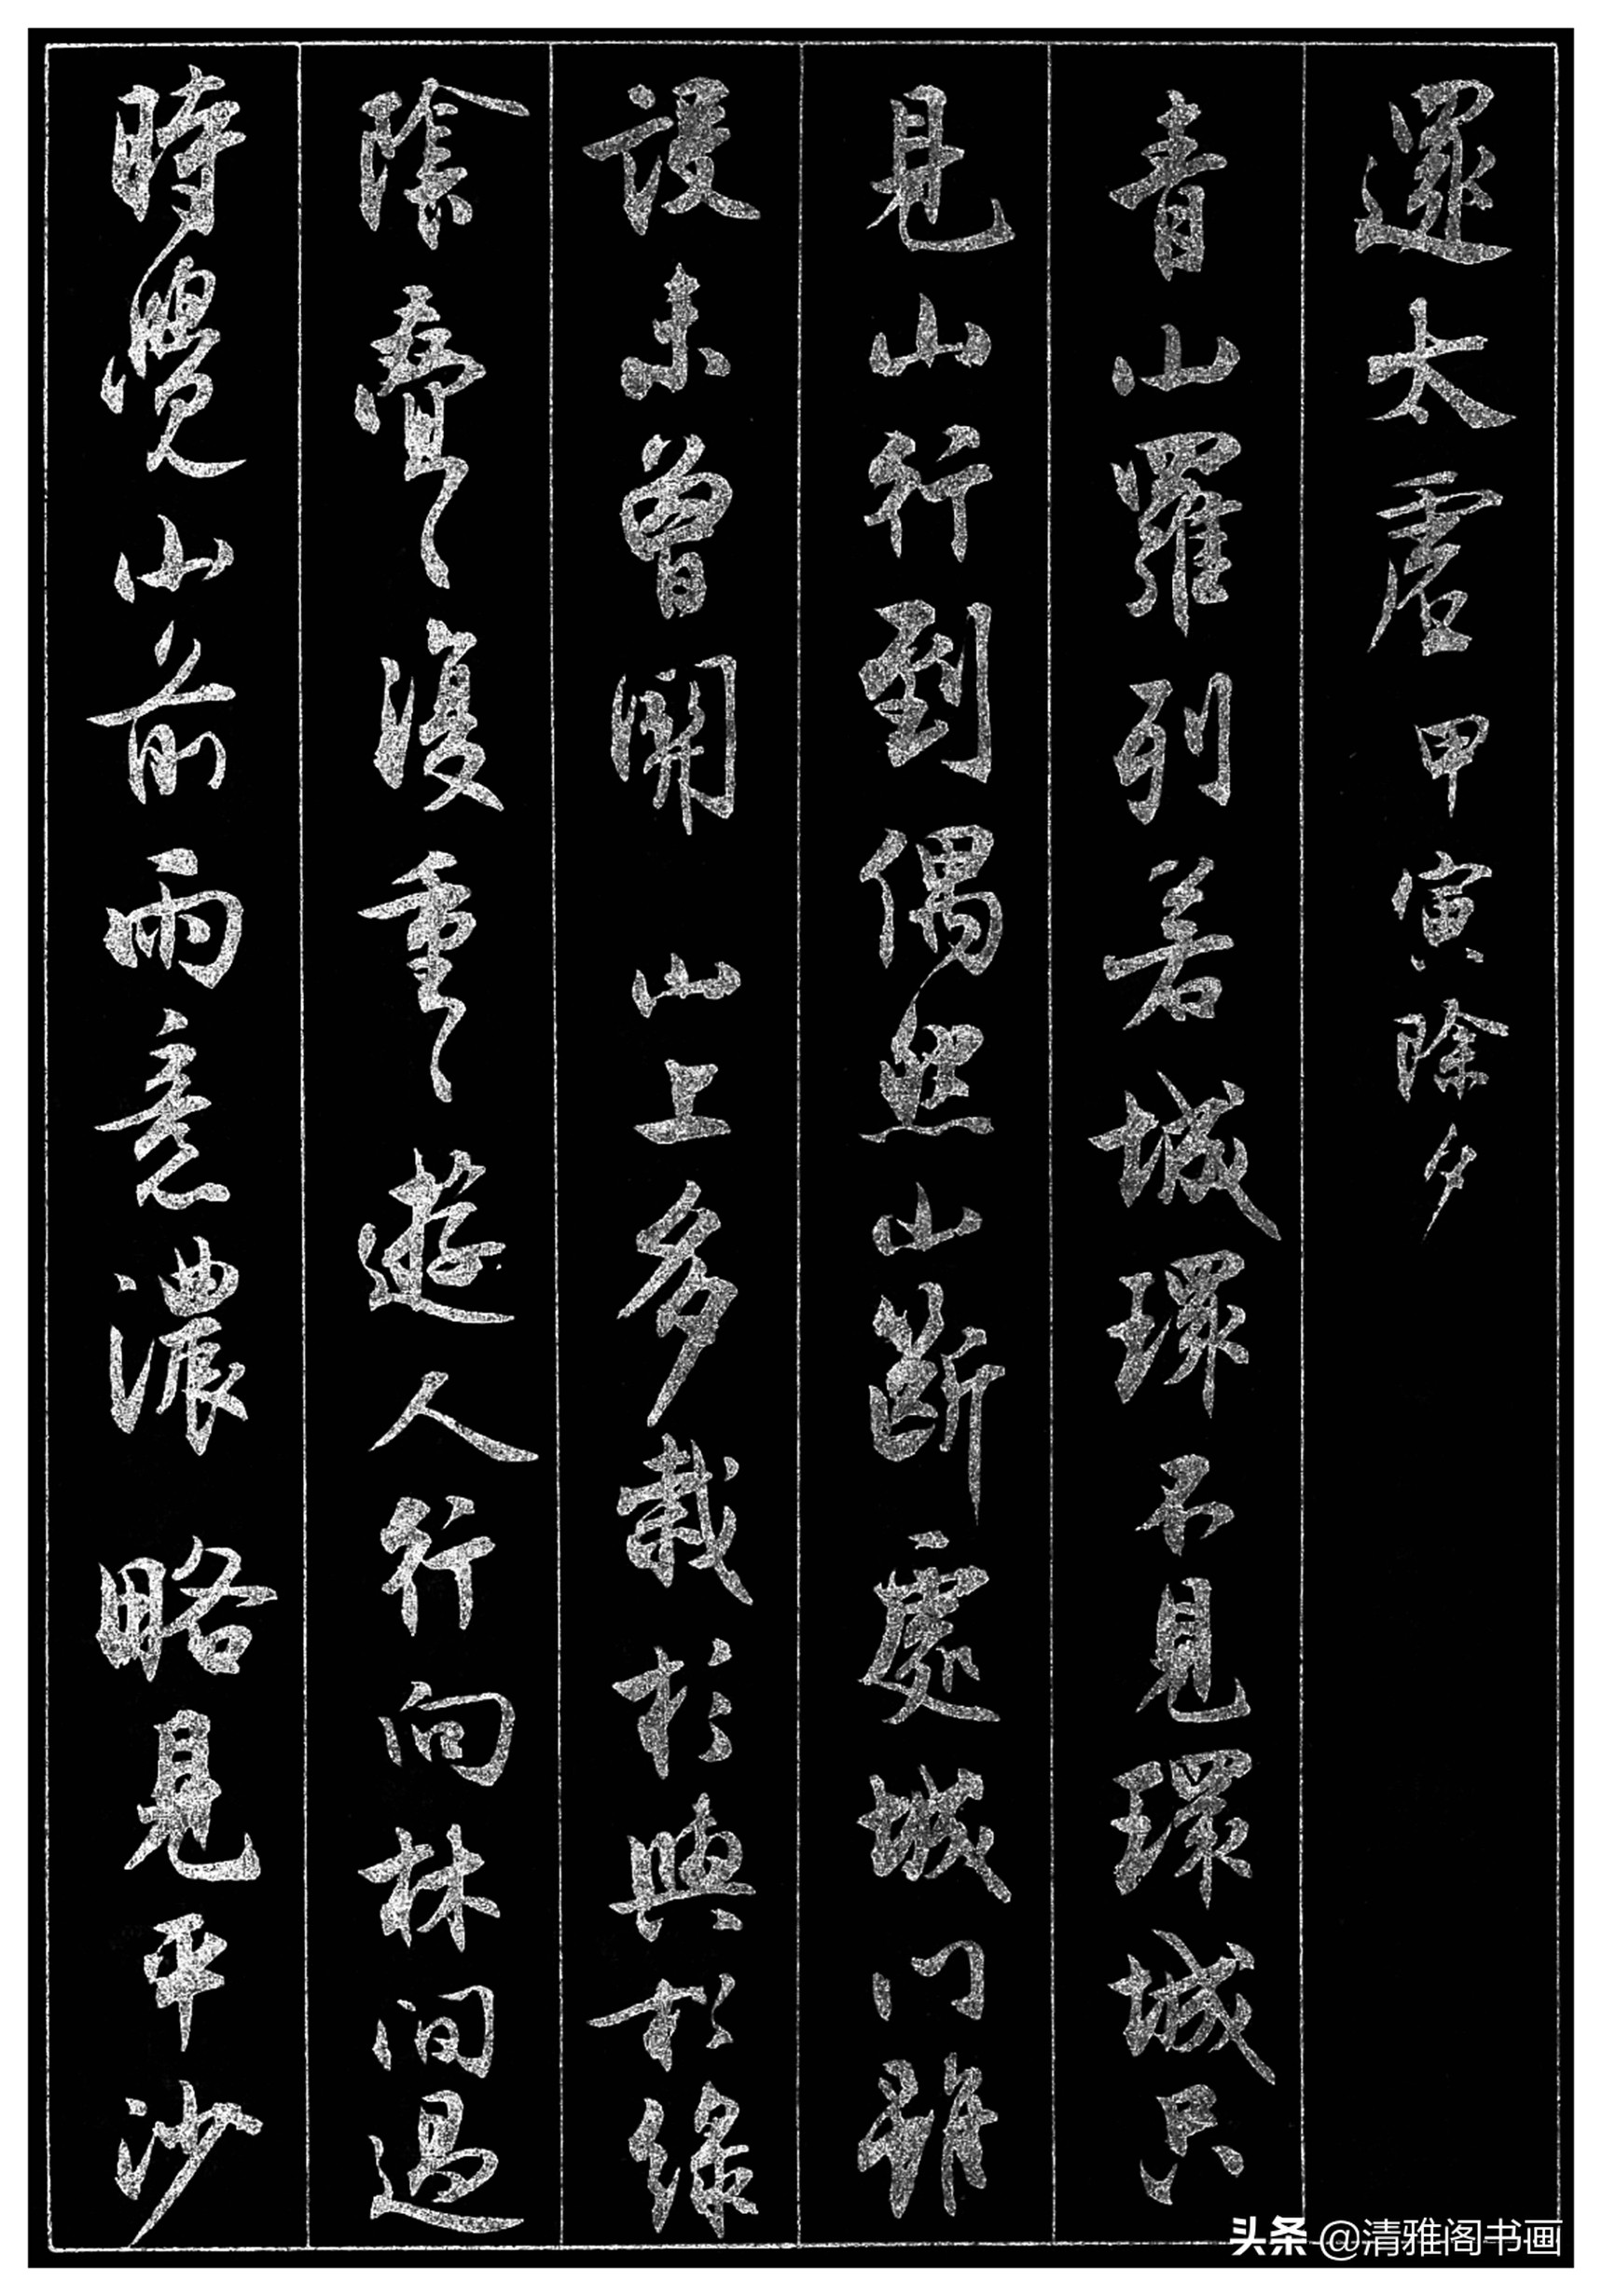 還太虛 甲寅除夕
青山羅列若城環不見環城只
見山行到偶然山斷處城門雖
設未曾開 山上多栽杉與松綠
陰疊〻復重〻遊人行向林間過
時覺山前雨意濃 略見平沙
头条 @清雅阁书画